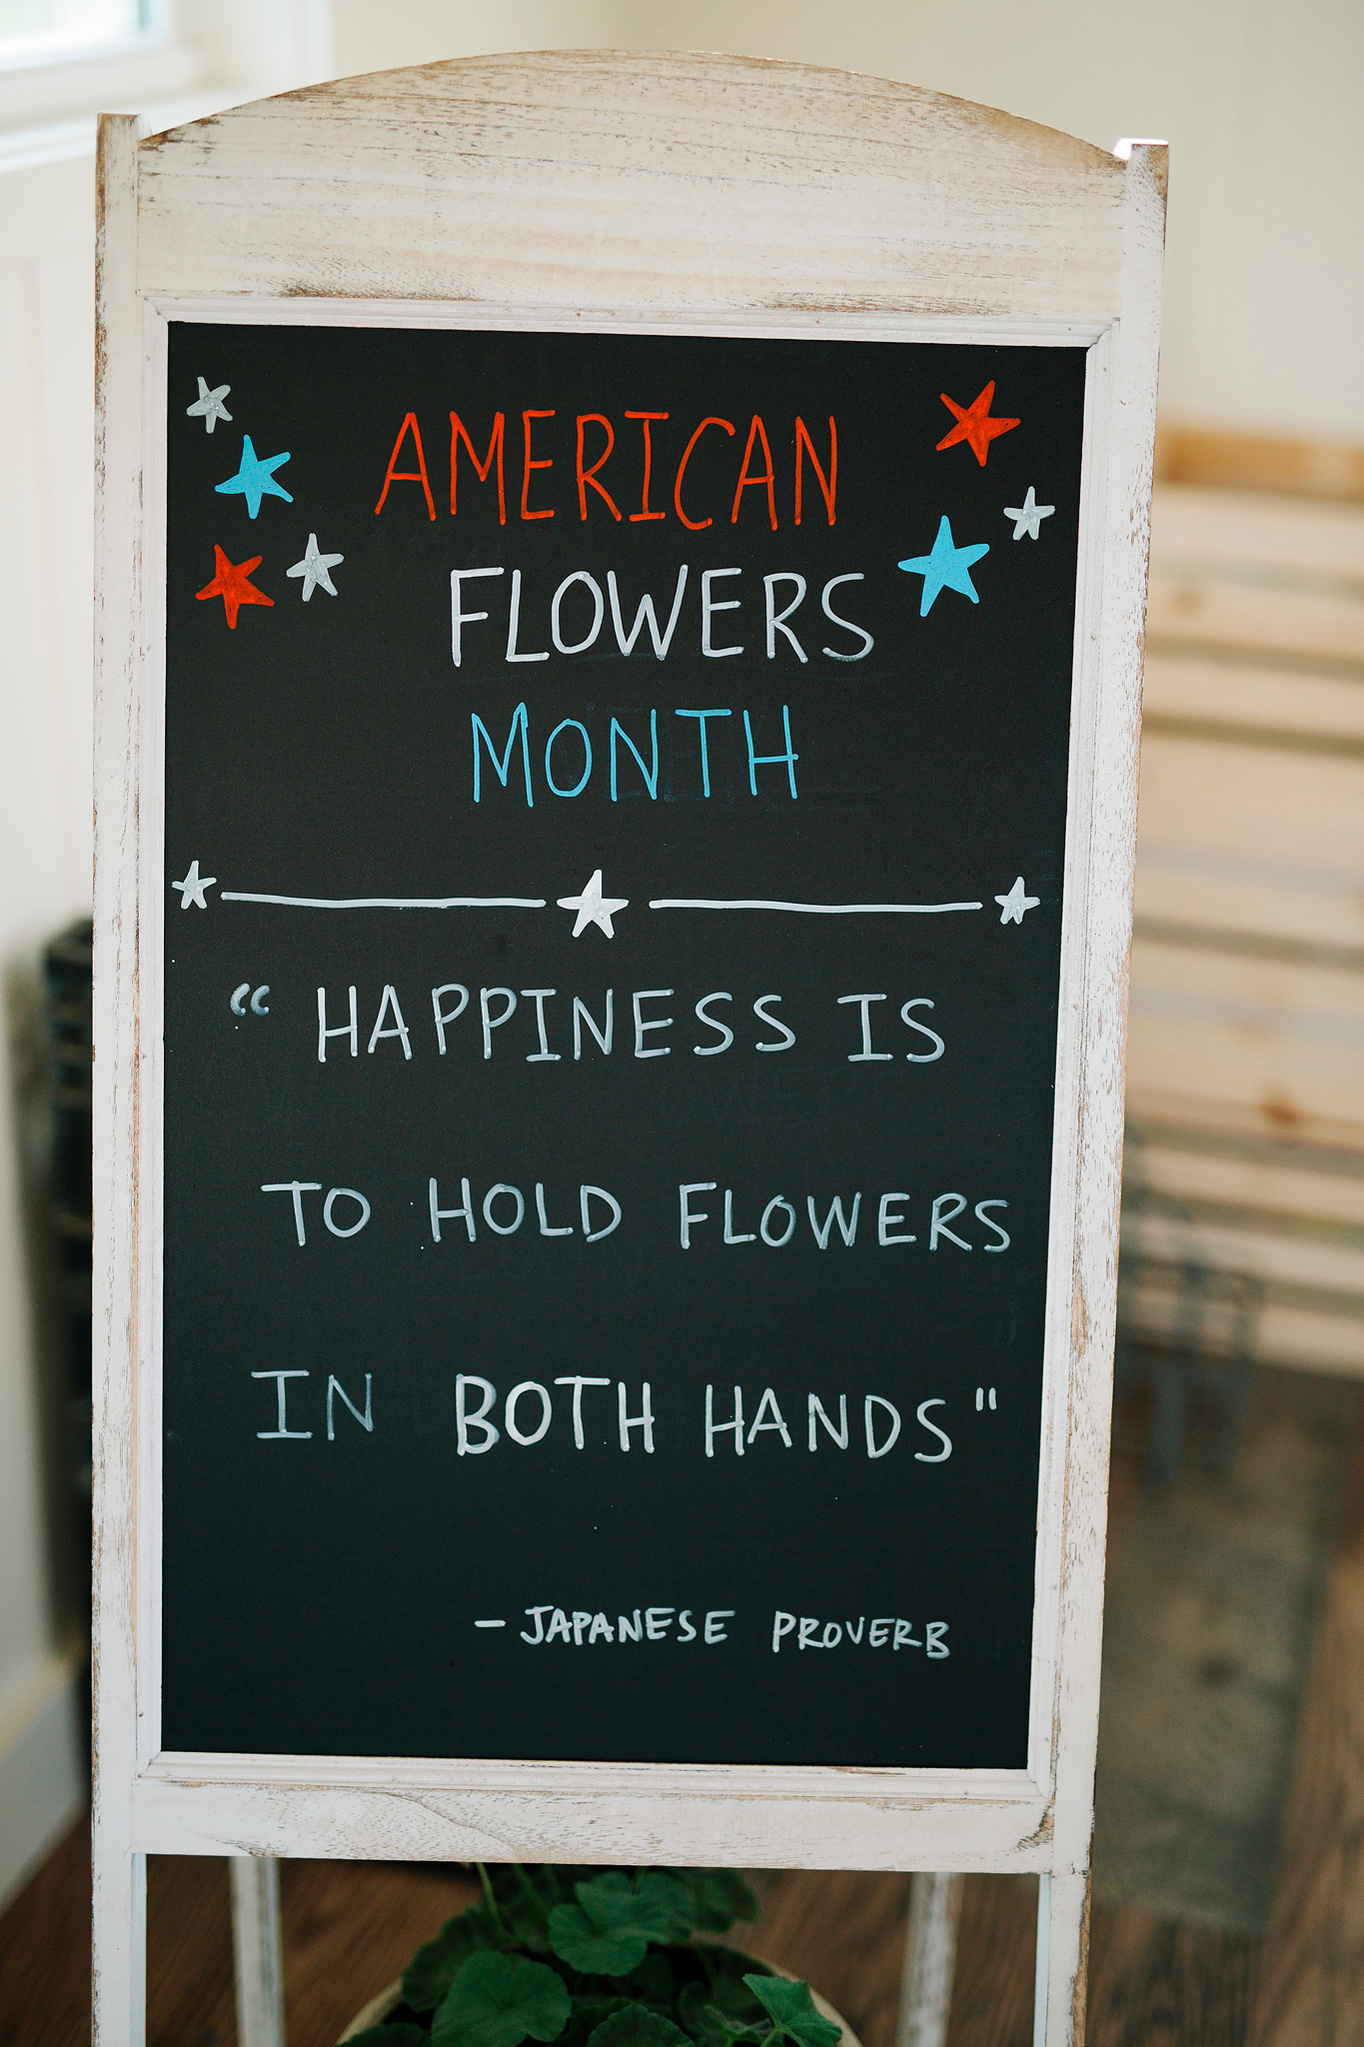 AMERICAN
FLOWERS
MONTH
“ HAPPINESS IS
TO HOLD FLOWERS
IN BOTH HANDS"
- JAPANESE PROVERB